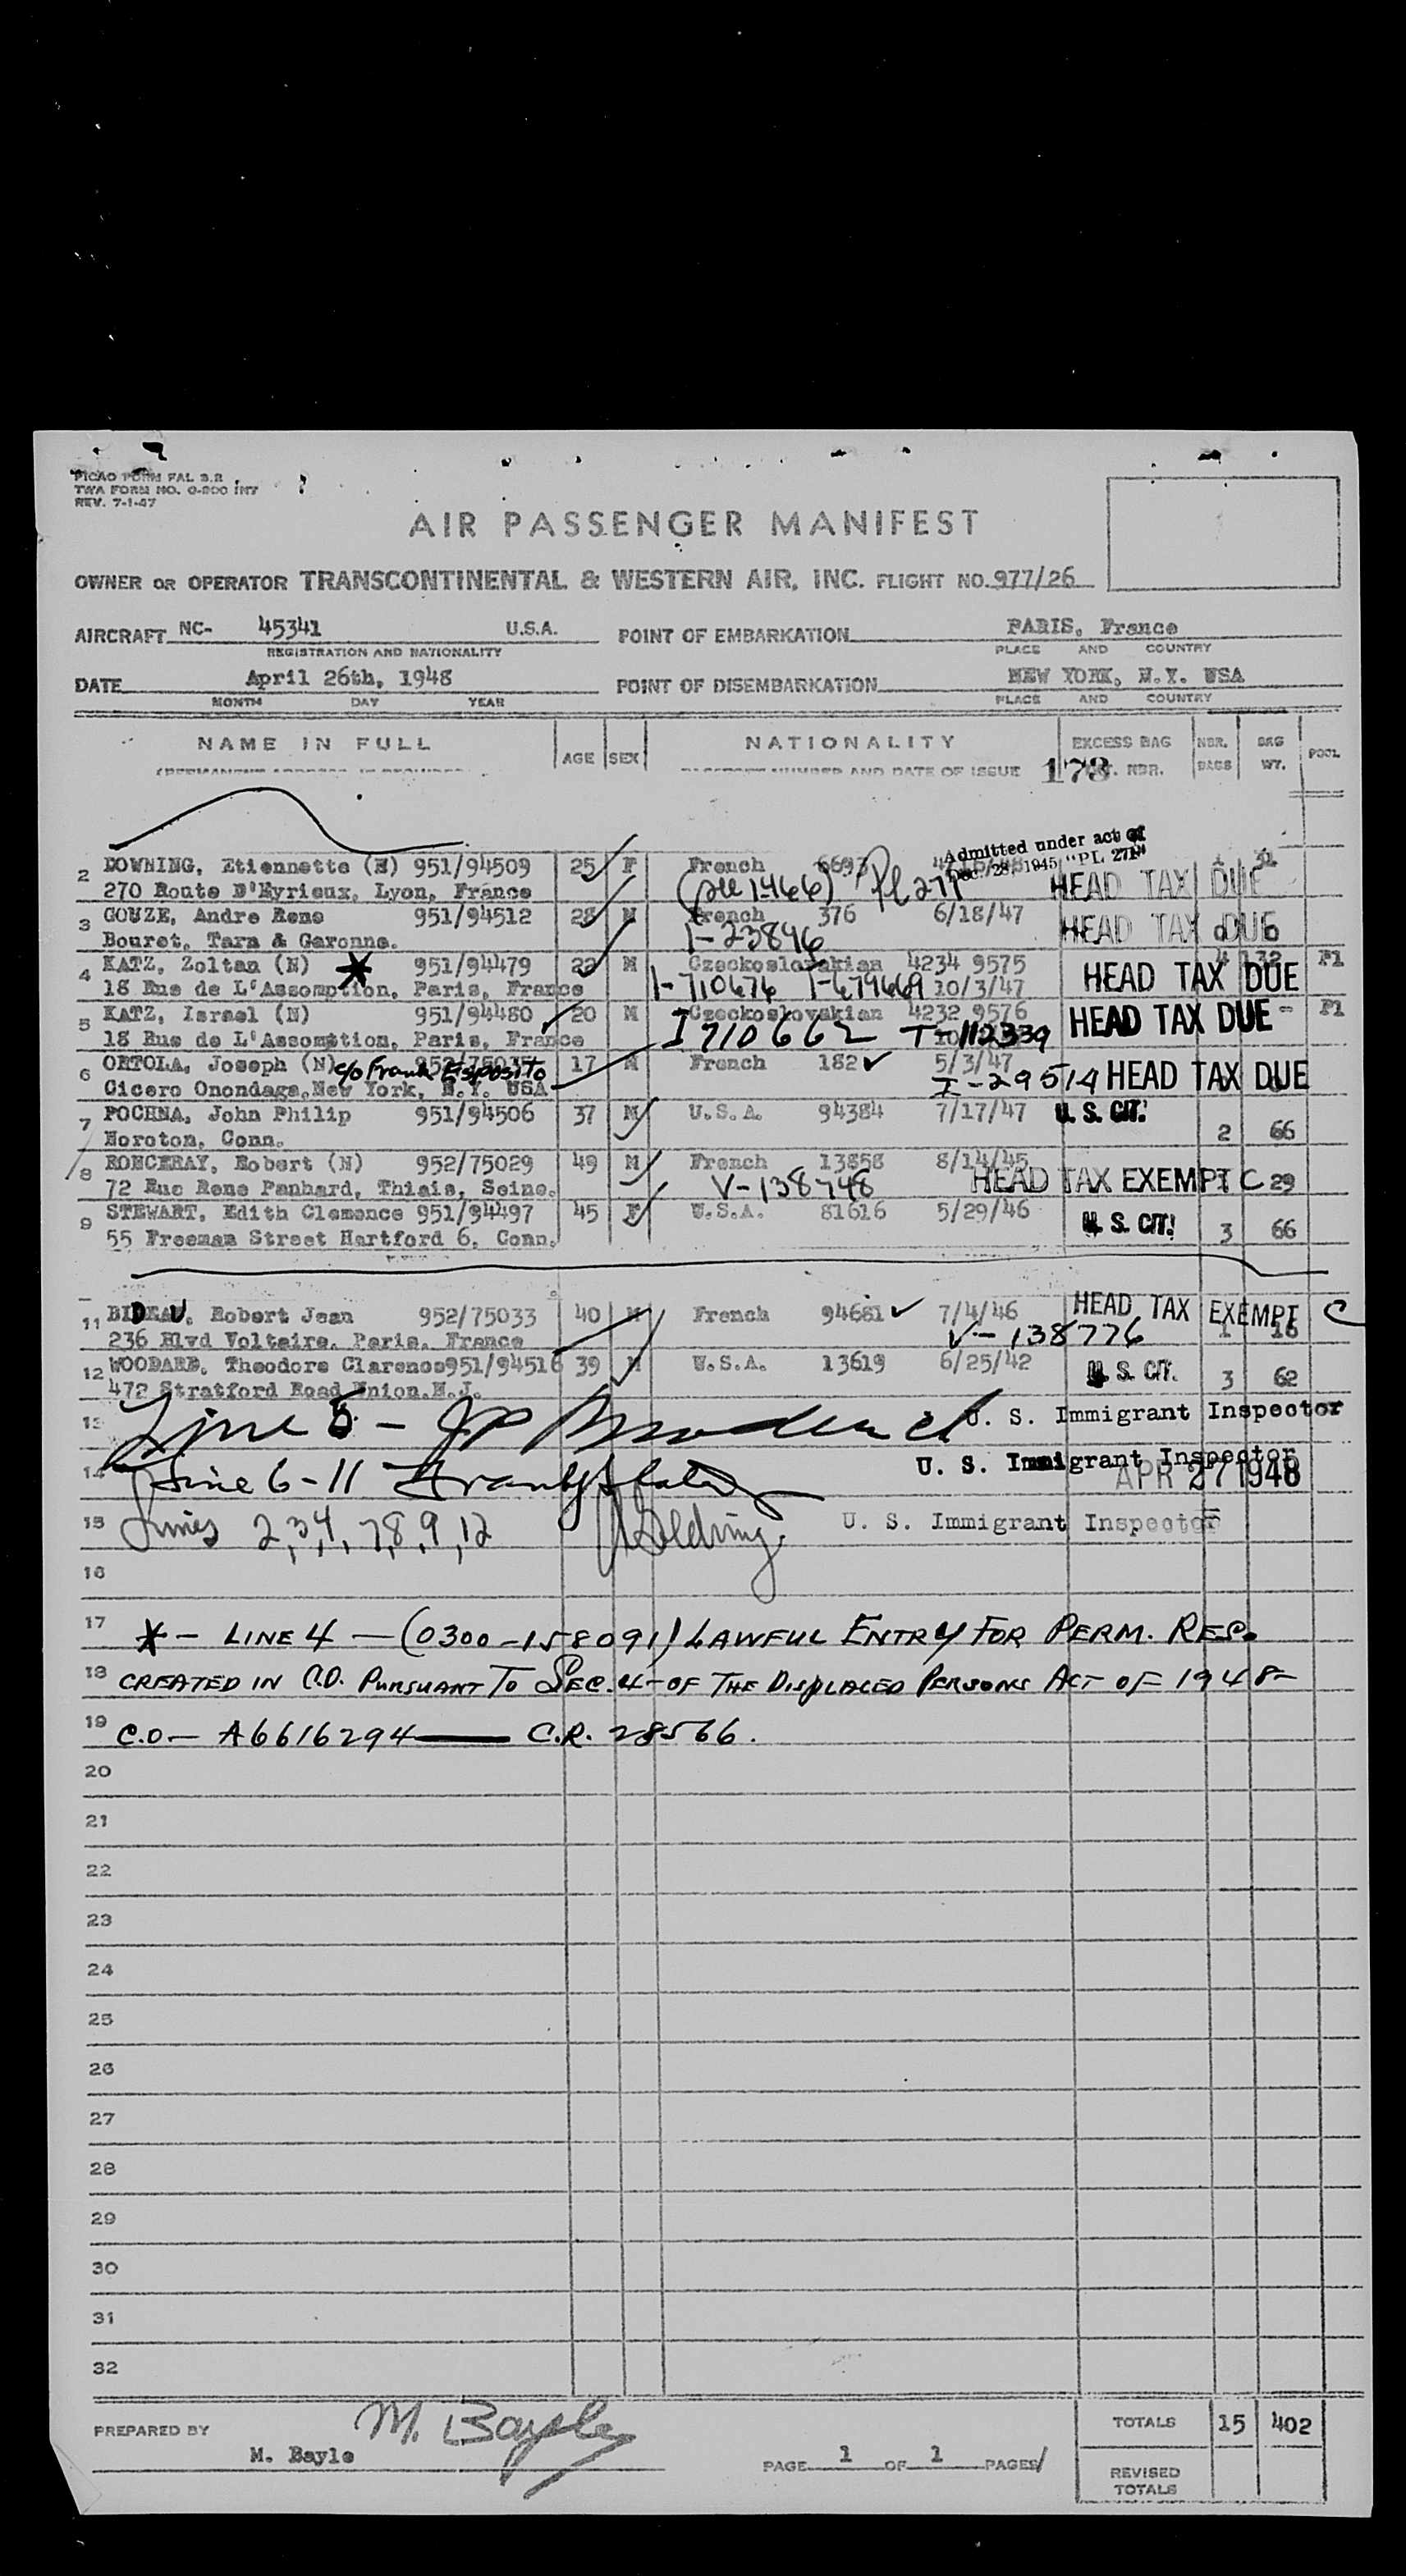 PICAO FORM FAL 2.2
TWA FORM NO. O-200 INT
REV. 7-1-47
AIR PASSENGER MANIFEST
OWNER OR OPERATOR TRANSCONTINENTAL & WESTERN AIR, INC. FLIGHT NO. 977/26
AIRCRAFT NC- 45341 U.S.A. POINT OF EMBARKATION PARIS, France
REGISTRATION AND NATIONALITY PLACE AND COUNTRY
DATE April 26th, 1948 POINT OF DISEMBARKATION NEW YORK, N.Y. USA
MONTH DAY YEAR PLACE AND COUNTRY
NAME IN FULL AGE SEX NATIONALITY EXCESS BAG NBR. BAGS BAG WT. POOL
NUMBER AND DATE OF ISSUE 178 NBR.
Admitted under act of
Dec. 28, 1945 "PL 271"
2 DOWNING, Etiennette (N) 951/94509 25 F French 6693 1 31
270 Route D'Eyrieux, Lyon, France (see 1466) PL 271 HEAD TAX DUE
3 GOUZE, Andre Rene 951/94512 28 M French 376 6/18/47 HEAD TAX DUE
Bouret, Tarn & Garonne. I-23896
4 KATZ, Zoltan (N) * 951/94479 22 M Czeckoslovakian 4234 9575 4 132 P1
18 Rue de L'Assomption, Paris, France I-710676 T-679669 10/3/47 HEAD TAX DUE
5 KATZ, Israel (N) 951/94480 20 M Czeckoslovakian 4232 9576 HEAD TAX DUE - P1
18 Rue de L'Assomption, Paris, France I 710662 T-112339
6 ORTOLA, Joseph (N) c/o Frank Esposito 952/75035 17 M French 182 5/3/47
Cicero Onondaga, New York, N.Y. USA I-29514 HEAD TAX DUE
7 POCHNA, John Philip 951/94506 37 M U.S.A. 94384 7/17/47 U.S. CIT.
Noroton, Conn. 2 66
8 RONCERAY, Robert (N) 952/75029 49 M French 13858 8/14/45
72 Rue Rene Panhard, Thiais, Seine. V-138748 HEAD TAX EXEMPT C 29
9 STEWART, Edith Clemence 951/94497 45 F U.S.A. 81616 5/29/46 U.S. CIT.
55 Freeman Street Hartford 6, Conn. 3 66
11 BIDEAU, Robert Jean 952/75033 40 M French 94681 7/4/46 HEAD TAX EXEMPT C
236 Blvd Voltaire, Paris, France V-138776 1 16
12 WOODARD, Theodore Clarence 951/94516 39 M U.S.A. 13619 6/25/42 U.S. CIT.
472 Stratford Road Union, N.J. 3 62
13 Line 5 - U. S. Immigrant Inspector
14 Line 6-11 U. S. Immigrant Inspector
APR 27 1948
15 Lines 2,3,4, 7,8,9,12 U. S. Immigrant Inspector
16
17 * - LINE 4 - (0300-158091) LAWFUL ENTRY FOR PERM. RES.
18 CREATED IN C.O. PURSUANT TO SEC. 4 - OF THE DISPLACED PERSONS ACT OF 1948-
19 C.O - A6616294 - C.R. 28566.
20
21
22
23
24
25
26
27
28
29
30
31
32
PREPARED BY M. Bayle TOTALS 15 402
M. Bayle PAGE 1 OF 1 PAGES
REVISED TOTALS